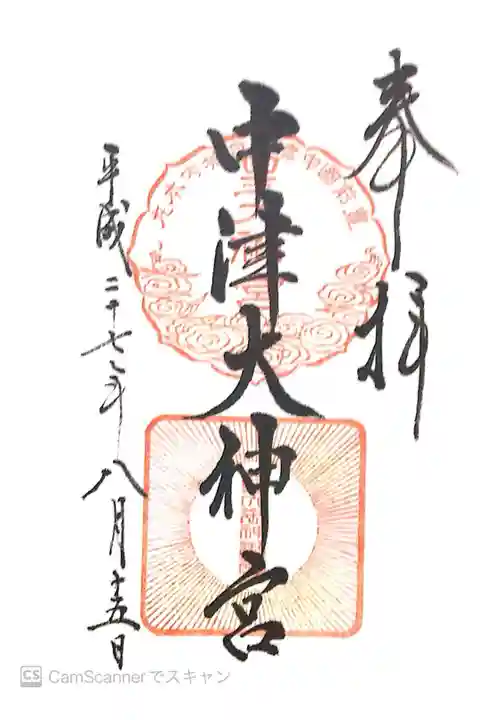 奉拝
中津大神宮
平成二十七年八月十五日
CS CamScannerでスキャン